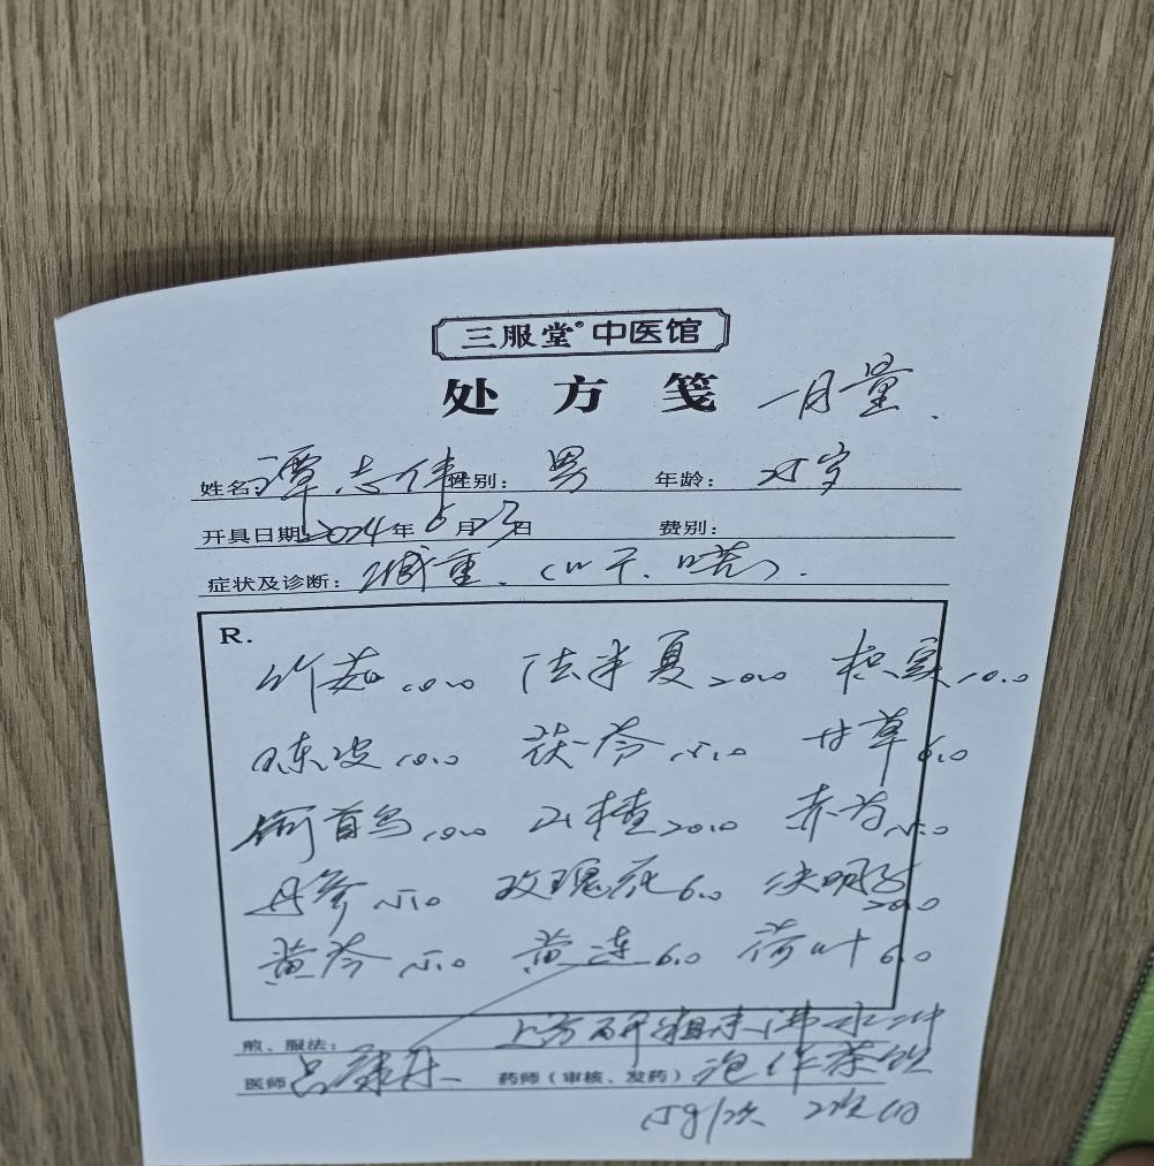 三服堂®中医馆
处方笺 一月量.
姓名: 谭志伟 性别: 男 年龄: 25岁
开具日期: 2024年5月23日 费别:
症状及诊断: 减重. (口干、口苦).
R.
竹茹10.0 法半夏20.0 枳实10.0
陈皮10.0 茯苓15.0 甘草6.0
何首乌10.0 山楂20.0 赤芍15.0
丹参15.0 玫瑰花6.0 决明子20.0
黄芩15.0 黄连6.0 荷叶6.0
煎、服法: 上方研粗末沸水冲
医师 药师(审核、发药) 泡作茶饮
15g/次 2次/日